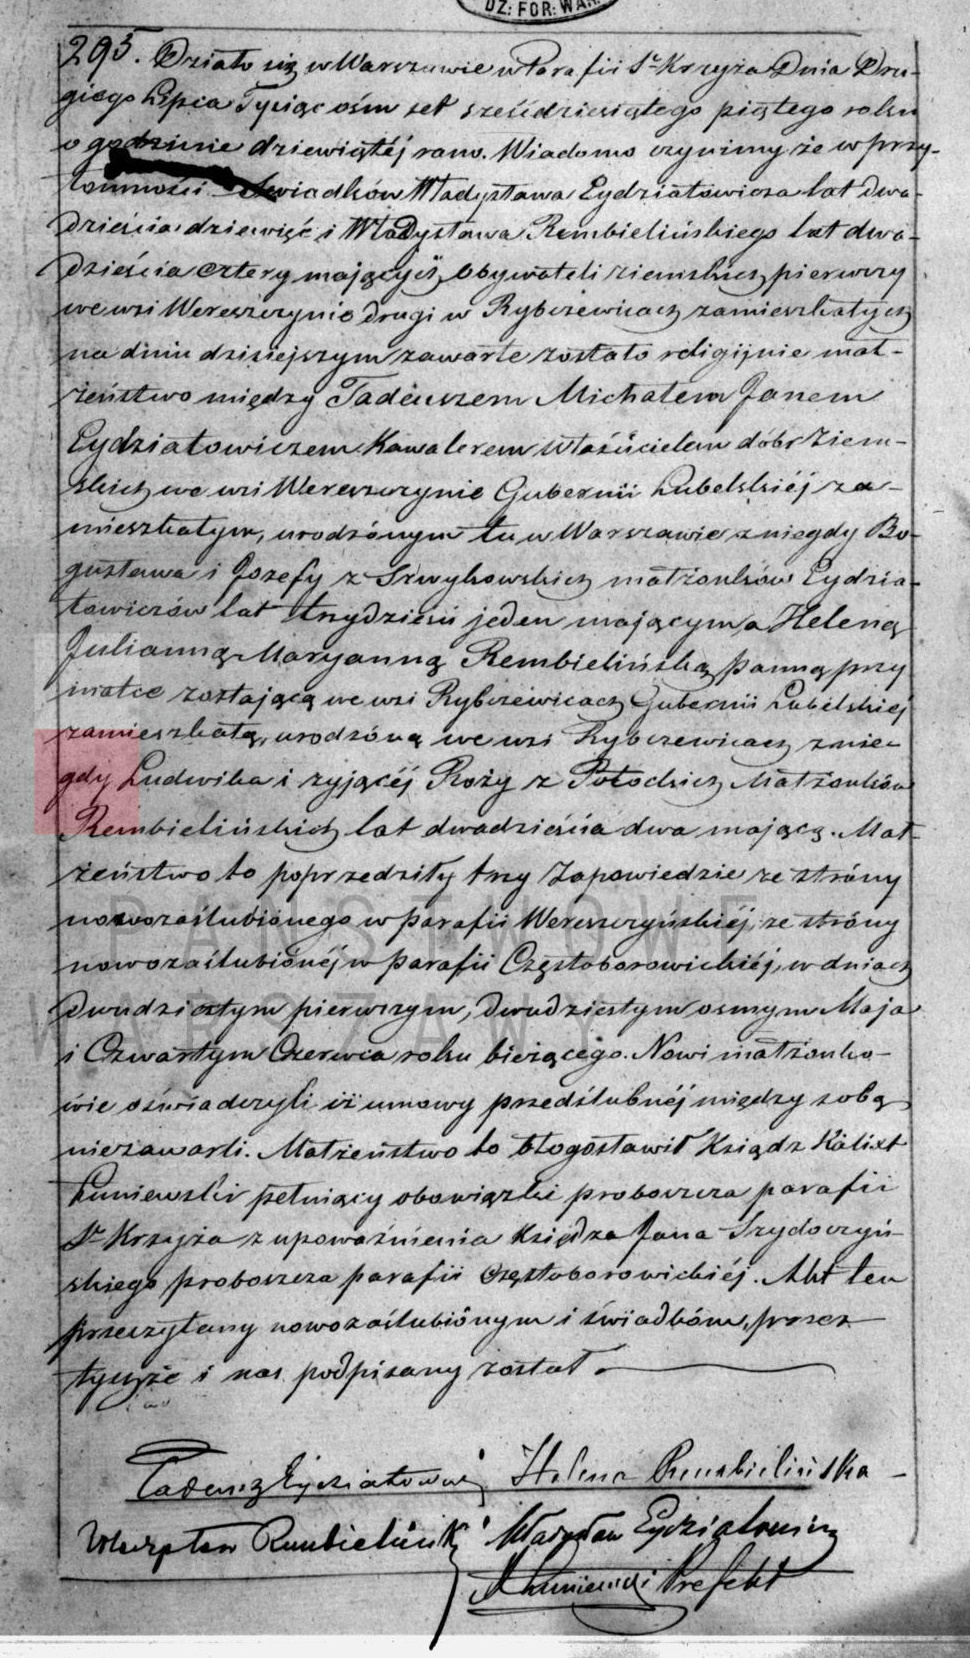 DZ: FOR: WAR.
295. Działo się w Warszawie w Parafii Sº Krzyża Dnia Dru-
giego Lipca Tysiąc ośm set sześćdziesiątego piątego roku
o godzinie dziewiątéj rano. Wiadomo czynimy że w przy-
tomności Świadków Władysława Eydziatowicza lat dwa-
dzieścia dziewięć i Władysława Rembielińskiego lat dwa-
dzieścia cztery mających, Obywateli ziemskich, pierwszy
we wsi Wereszczynie drugi w Rybczewicach zamieszkałych
na dniu dzisiejszym zawarte zostało religijnie mał-
żeństwo między Tadeuszem Michałem Janem
Eydziatowiczem Kawalerem Właścicielem dóbr Ziem-
skich we wsi Wereszczynie Gubernii Lubelskiéj za-
mieszkałym, urodzonym tu w Warszawie z niegdy Bo-
gusława i Jozefy z Szwykowskich małżonków Eydzia-
towiczów lat trzydzieści jeden mającym, a Heleną
Julianną Maryanną Rembielińską panną przy
matce zostającą we wsi Rybczewicach Gubernii Lubelskiéj
zamieszkałą, urodzoną we wsi Rybczewicach z nie-
gdy Ludwika i żyjącéj Róży z Potockich Małżonków
Rembielińskich lat dwadzieścia dwa mającą. Mał-
żeństwo to poprzedziły trzy Zapowiedzie ze strony
nowozaślubionego w parafii Wereszczyńskiéj, ze strony
nowozaślubionéj w parafii Częstoborowickiéj, w dniach
dwudziestym pierwszym, dwudziestym osmym Maja
i Czwartym Czerwca roku bieżącego. Nowi małżonko-
wie oświadczyli iż umowy przedślubnéj między sobą
niezawarli. Małżeństwo to błogosławił Ksiądz Kalixt
Łuniewski pełniący obowiązki proboszcza parafii
Sº Krzyża z upoważnienia Księdza Jana Szydoczyń-
skiego proboszcza parafii Częstoborowickiéj. Akt ten
przeczytany nowozaślubionym i świadkom, przez
tychże i nas podpisany został.
Tadeusz Eydziatowicz Helena Rembielińska
Władysław Rembieliński Władysław Eydziatowicz
Łuniewski Prefekt
PAŃSTWOWE
WARSZAWY